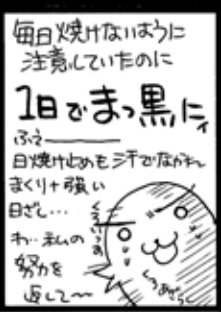 毎日焼けないように
注意していたのに
1日でまっ黒にィ
ふえ――
日焼け止めも汗でながれ〜
まくり+強い
日ざし…
わ…私の
努力を
返して〜〜